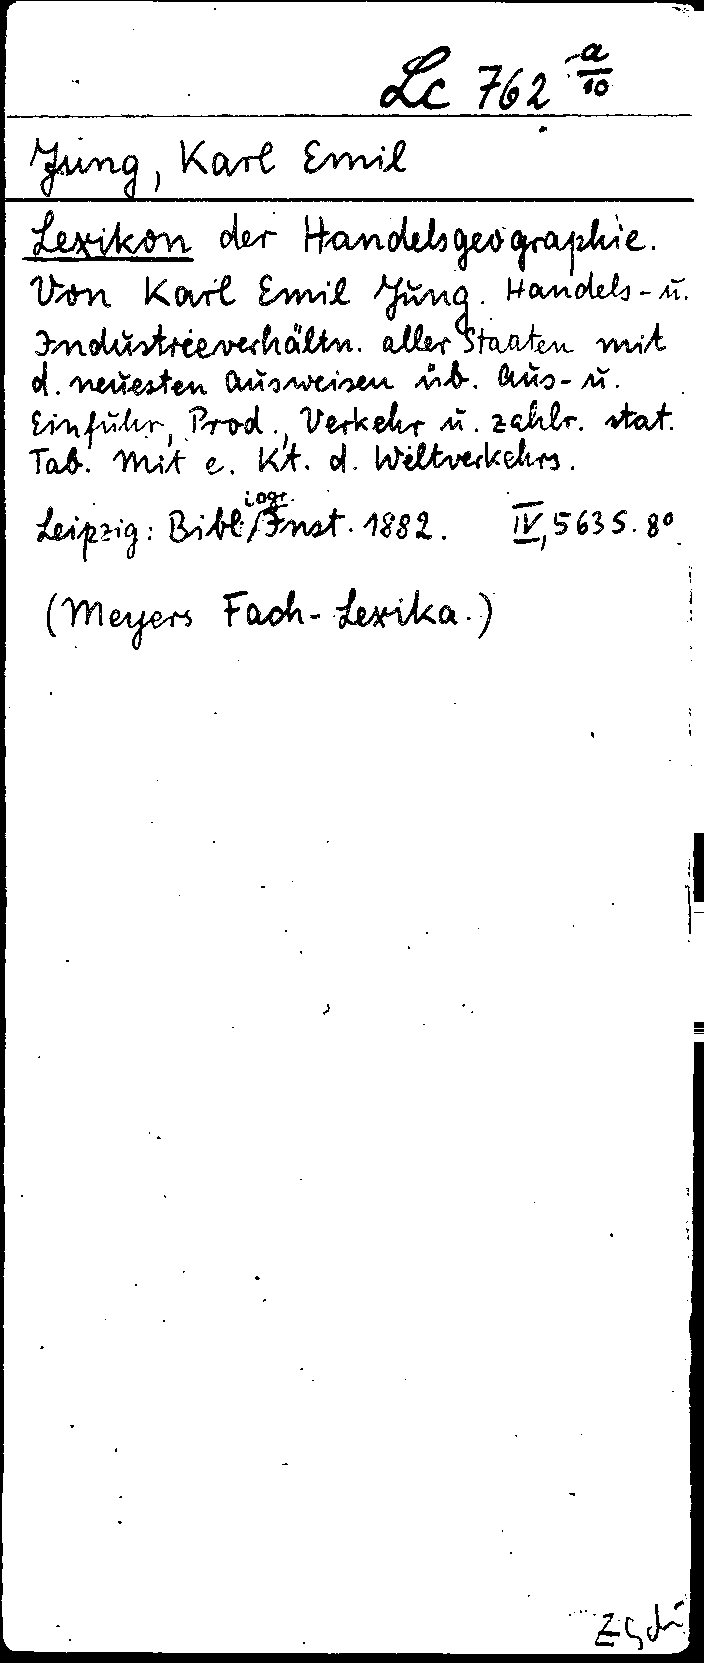 Lc 762 a/10
Jung, Karl Emil
Lexikon der Handelsgeographie.
Von Karl Emil Jung. Handels- u.
Industrieverhältn. aller Staaten mit
d. neuesten Ausweisen üb. Aus- u.
Einfuhr, Prod., Verkehr u. zahlr. stat.
Tab. Mit e. Kt. d. Weltverkehrs.
Leipzig: Bibliogr. Inst. 1882. IV, 563 S. 8°
(Meyers Fach-Lexika.)